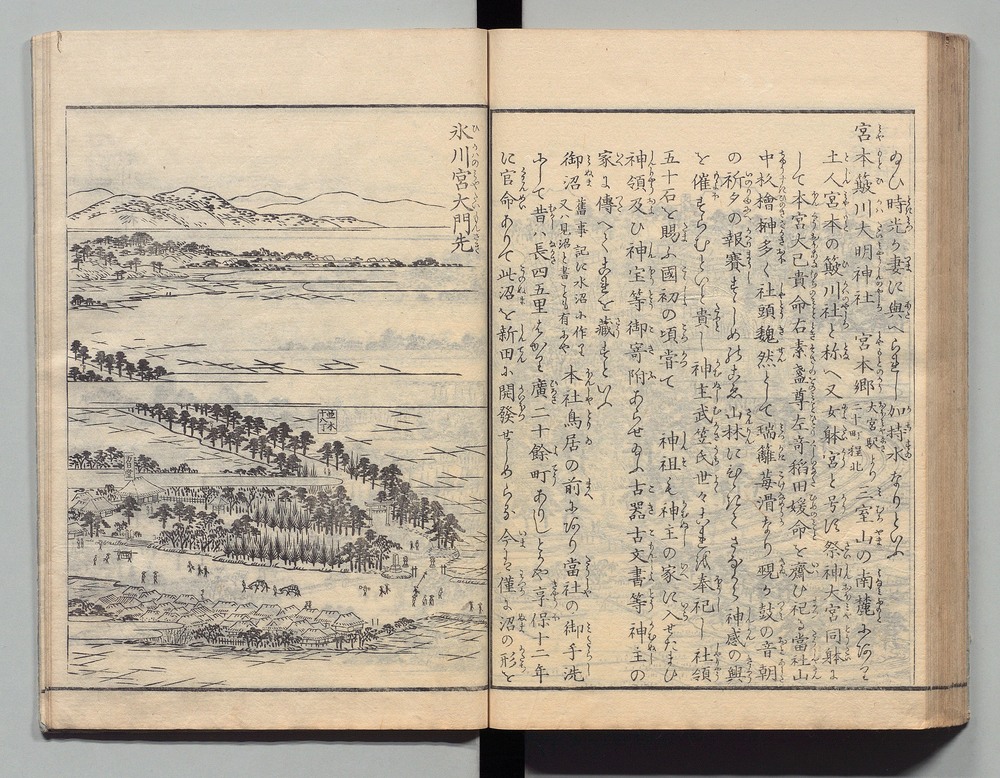 ゐひ時光の妻に與へられし加持水なりといふ
宮本簸川大明神社 宮本郷 大宮駅より二十町程北 三室山の南麓にあり
土人宮本の簸川社と称へ又女躰宮と号に祭神大宮同躰に
して本宮大己貴命右素盞尊左奇稲田媛命を齋ひ祀る當社山
中杉檜榊多く社頭魏然として瑞籬苺滑なり現の鼓の音朝
の祈夕の報賽すしめ山林にひゝきて神感の興
を催すらむといと貴し神主武笠氏世々奉祀し社領
五十石を賜ふ國初の頃嘗て 神祖も神主の家に入せたまひ
神領及ひ神宝等御寄附あらせ古器古文書等神主の
家に傳へてこれを藏すといへ
御沼 舊事記に水沼小作る又ハ見沼と書るも有や 本社鳥居の前にあり當社の御手洗
にして昔ハ長四五里はかり廣二十餘町ありしとや享保十二年
に官命ありて此沼を新田に開發せしめらる今ハ僅に沼の形を
氷川宮大門先
並木十八丁